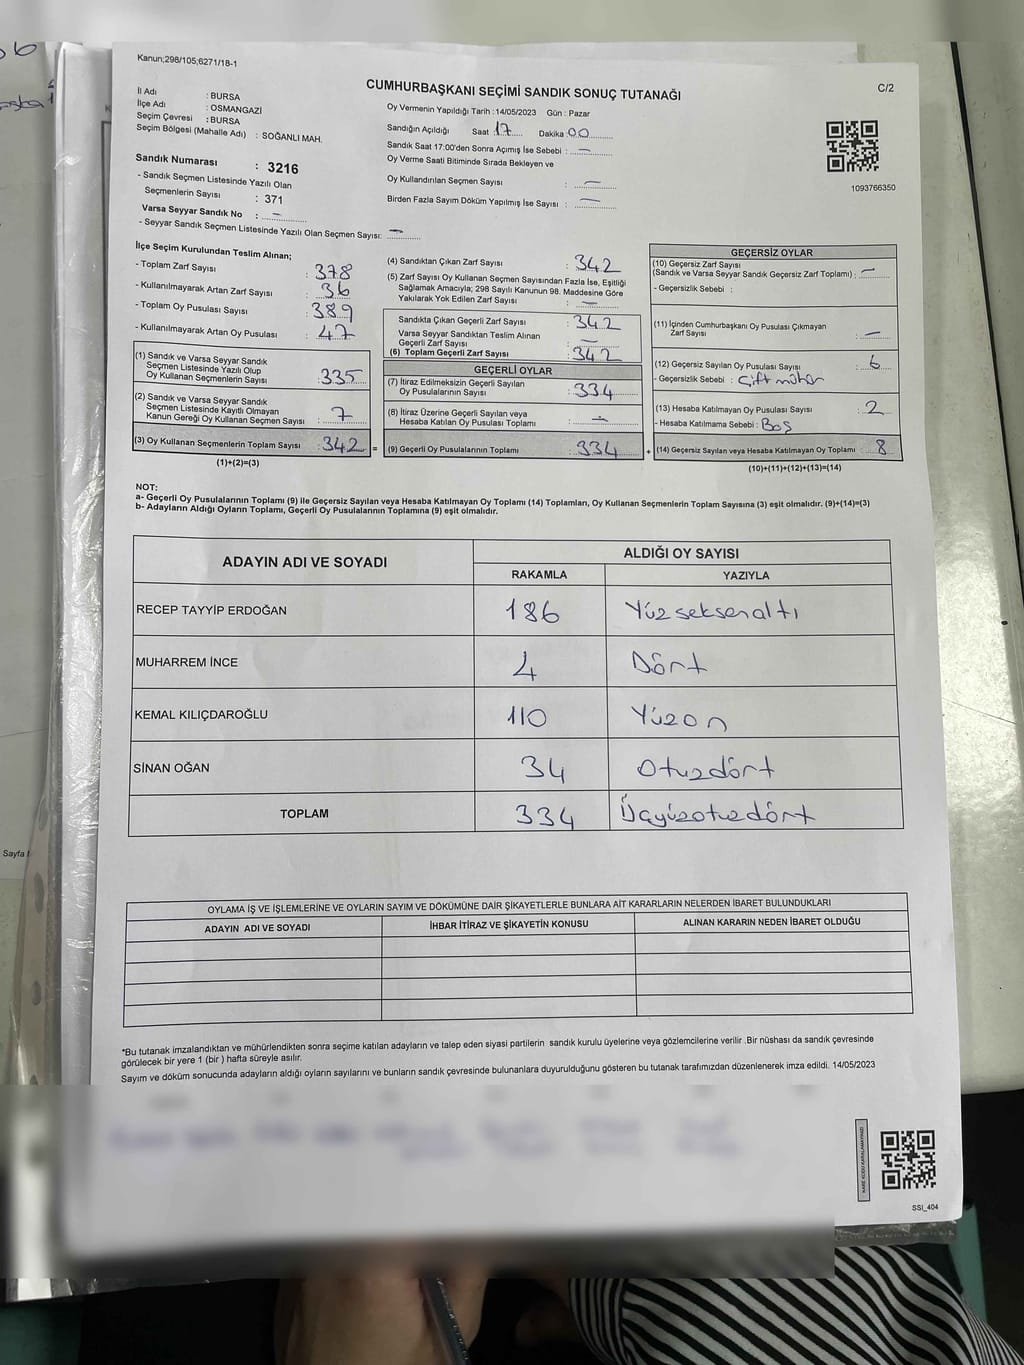 Kanun;298/105;6271/18-1
CUMHURBAŞKANI SEÇİMİ SANDIK SONUÇ TUTANAĞI
C/2
İl Adı : BURSA
İlçe Adı : OSMANGAZİ
Seçim Çevresi : BURSA
Seçim Bölgesi (Mahalle Adı) : SOĞANLI MAH.
Sandık Numarası : 3216
- Sandık Seçmen Listesinde Yazılı Olan
Seçmenlerin Sayısı : 371
Varsa Seyyar Sandık No : —
- Seyyar Sandık Seçmen Listesinde Yazılı Olan Seçmen Sayısı: —
Oy Vermenin Yapıldığı Tarih :14/05/2023 Gün : Pazar
Sandığın Açıldığı Saat 17 Dakika 00
Sandık Saat 17:00'den Sonra Açımış İse Sebebi : —
Oy Verme Saati Bitiminde Sırada Bekleyen ve
Oy Kullandırılan Seçmen Sayısı : —
Birden Fazla Sayım Döküm Yapılmış İse Sayısı : —
1093766350
İlçe Seçim Kurulundan Teslim Alınan;
- Toplam Zarf Sayısı : 378
- Kullanılmayarak Artan Zarf Sayısı : 36
- Toplam Oy Pusulası Sayısı : 389
- Kullanılmayarak Artan Oy Pusulası : 47
(1) Sandık ve Varsa Seyyar Sandık
Seçmen Listesinde Yazılı Olup
Oy Kullanan Seçmenlerin Sayısı : 335
(2) Sandık ve Varsa Seyyar Sandık
Seçmen Listesinde Kayıtlı Olmayan
Kanun Gereği Oy Kullanan Seçmen Sayısı : 7
(3) Oy Kullanan Seçmenlerin Toplam Sayısı : 342 =
(1)+(2)=(3)
(4) Sandıktan Çıkan Zarf Sayısı : 342
(5) Zarf Sayısı Oy Kullanan Seçmen Sayısından Fazla İse, Eşitliği
Sağlamak Amacıyla; 298 Sayılı Kanunun 98. Maddesine Göre
Yakılarak Yok Edilen Zarf Sayısı : —
Sandıkta Çıkan Geçerli Zarf Sayısı : 342
Varsa Seyyar Sandıktan Teslim Alınan
Geçerli Zarf Sayısı : —
(6) Toplam Geçerli Zarf Sayısı : 342
GEÇERLİ OYLAR
(7) İtiraz Edilmeksizin Geçerli Sayılan
Oy Pusulalarının Sayısı : 334
(8) İtiraz Üzerine Geçerli Sayılan veya
Hesaba Katılan Oy Pusulası Toplamı : —
(9) Geçerli Oy Pusulalarının Toplamı : 334 +
GEÇERSİZ OYLAR
(10) Geçersiz Zarf Sayısı
(Sandık ve Varsa Seyyar Sandık Geçersiz Zarf Toplamı) : —
- Geçersizlik Sebebi :
(11) İçinden Cumhurbaşkanı Oy Pusulası Çıkmayan
Zarf Sayısı : —
(12) Geçersiz Sayılan Oy Pusulası Sayısı : 6
- Geçersizlik Sebebi : Çift mühür
(13) Hesaba Katılmayan Oy Pusulası Sayısı : 2
- Hesaba Katılmama Sebebi : Boş
(14) Geçersiz Sayılan veya Hesaba Katılmayan Oy Toplamı : 8
(10)+(11)+(12)+(13)=(14)
NOT:
a- Geçerli Oy Pusulalarının Toplamı (9) ile Geçersiz Sayılan veya Hesaba Katılmayan Oy Toplamı (14) Toplamları, Oy Kullanan Seçmenlerin Toplam Sayısına (3) eşit olmalıdır. (9)+(14)=(3)
b- Adayların Aldığı Oyların Toplamı, Geçerli Oy Pusulalarının Toplamına (9) eşit olmalıdır.
ADAYIN ADI VE SOYADI
ALDIĞI OY SAYISI
RAKAMLA YAZIYLA
RECEP TAYYİP ERDOĞAN 186 Yüzseksenaltı
MUHARREM İNCE 4 Dört
KEMAL KILIÇDAROĞLU 110 Yüzon
SİNAN OĞAN 34 Otuzdört
TOPLAM 334 Üçyüzotuzdört
OYLAMA İŞ VE İŞLEMLERİNE VE OYLARIN SAYIM VE DÖKÜMÜNE DAİR ŞİKAYETLERLE BUNLARA AİT KARARLARIN NELERDEN İBARET BULUNDUKLARI
ADAYIN ADI VE SOYADI İHBAR İTİRAZ VE ŞİKAYETİN KONUSU ALINAN KARARIN NEDEN İBARET OLDUĞU
*Bu tutanak imzalandıktan ve mühürlendikten sonra seçime katılan adayların ve talep eden siyasi partilerin sandık kurulu üyelerine veya gözlemcilerine verilir .Bir nüshası da sandık çevresinde
görülecek bir yere 1 (bir ) hafta süreyle asılır.
Sayım ve döküm sonucunda adayların aldığı oyların sayılarını ve bunların sandık çevresinde bulunanlara duyurulduğunu gösteren bu tutanak tarafımızdan düzenlenerek imza edildi. 14/05/2023
KARE KODU KARALAMAYINIZ!
SSI_404
Sayfa